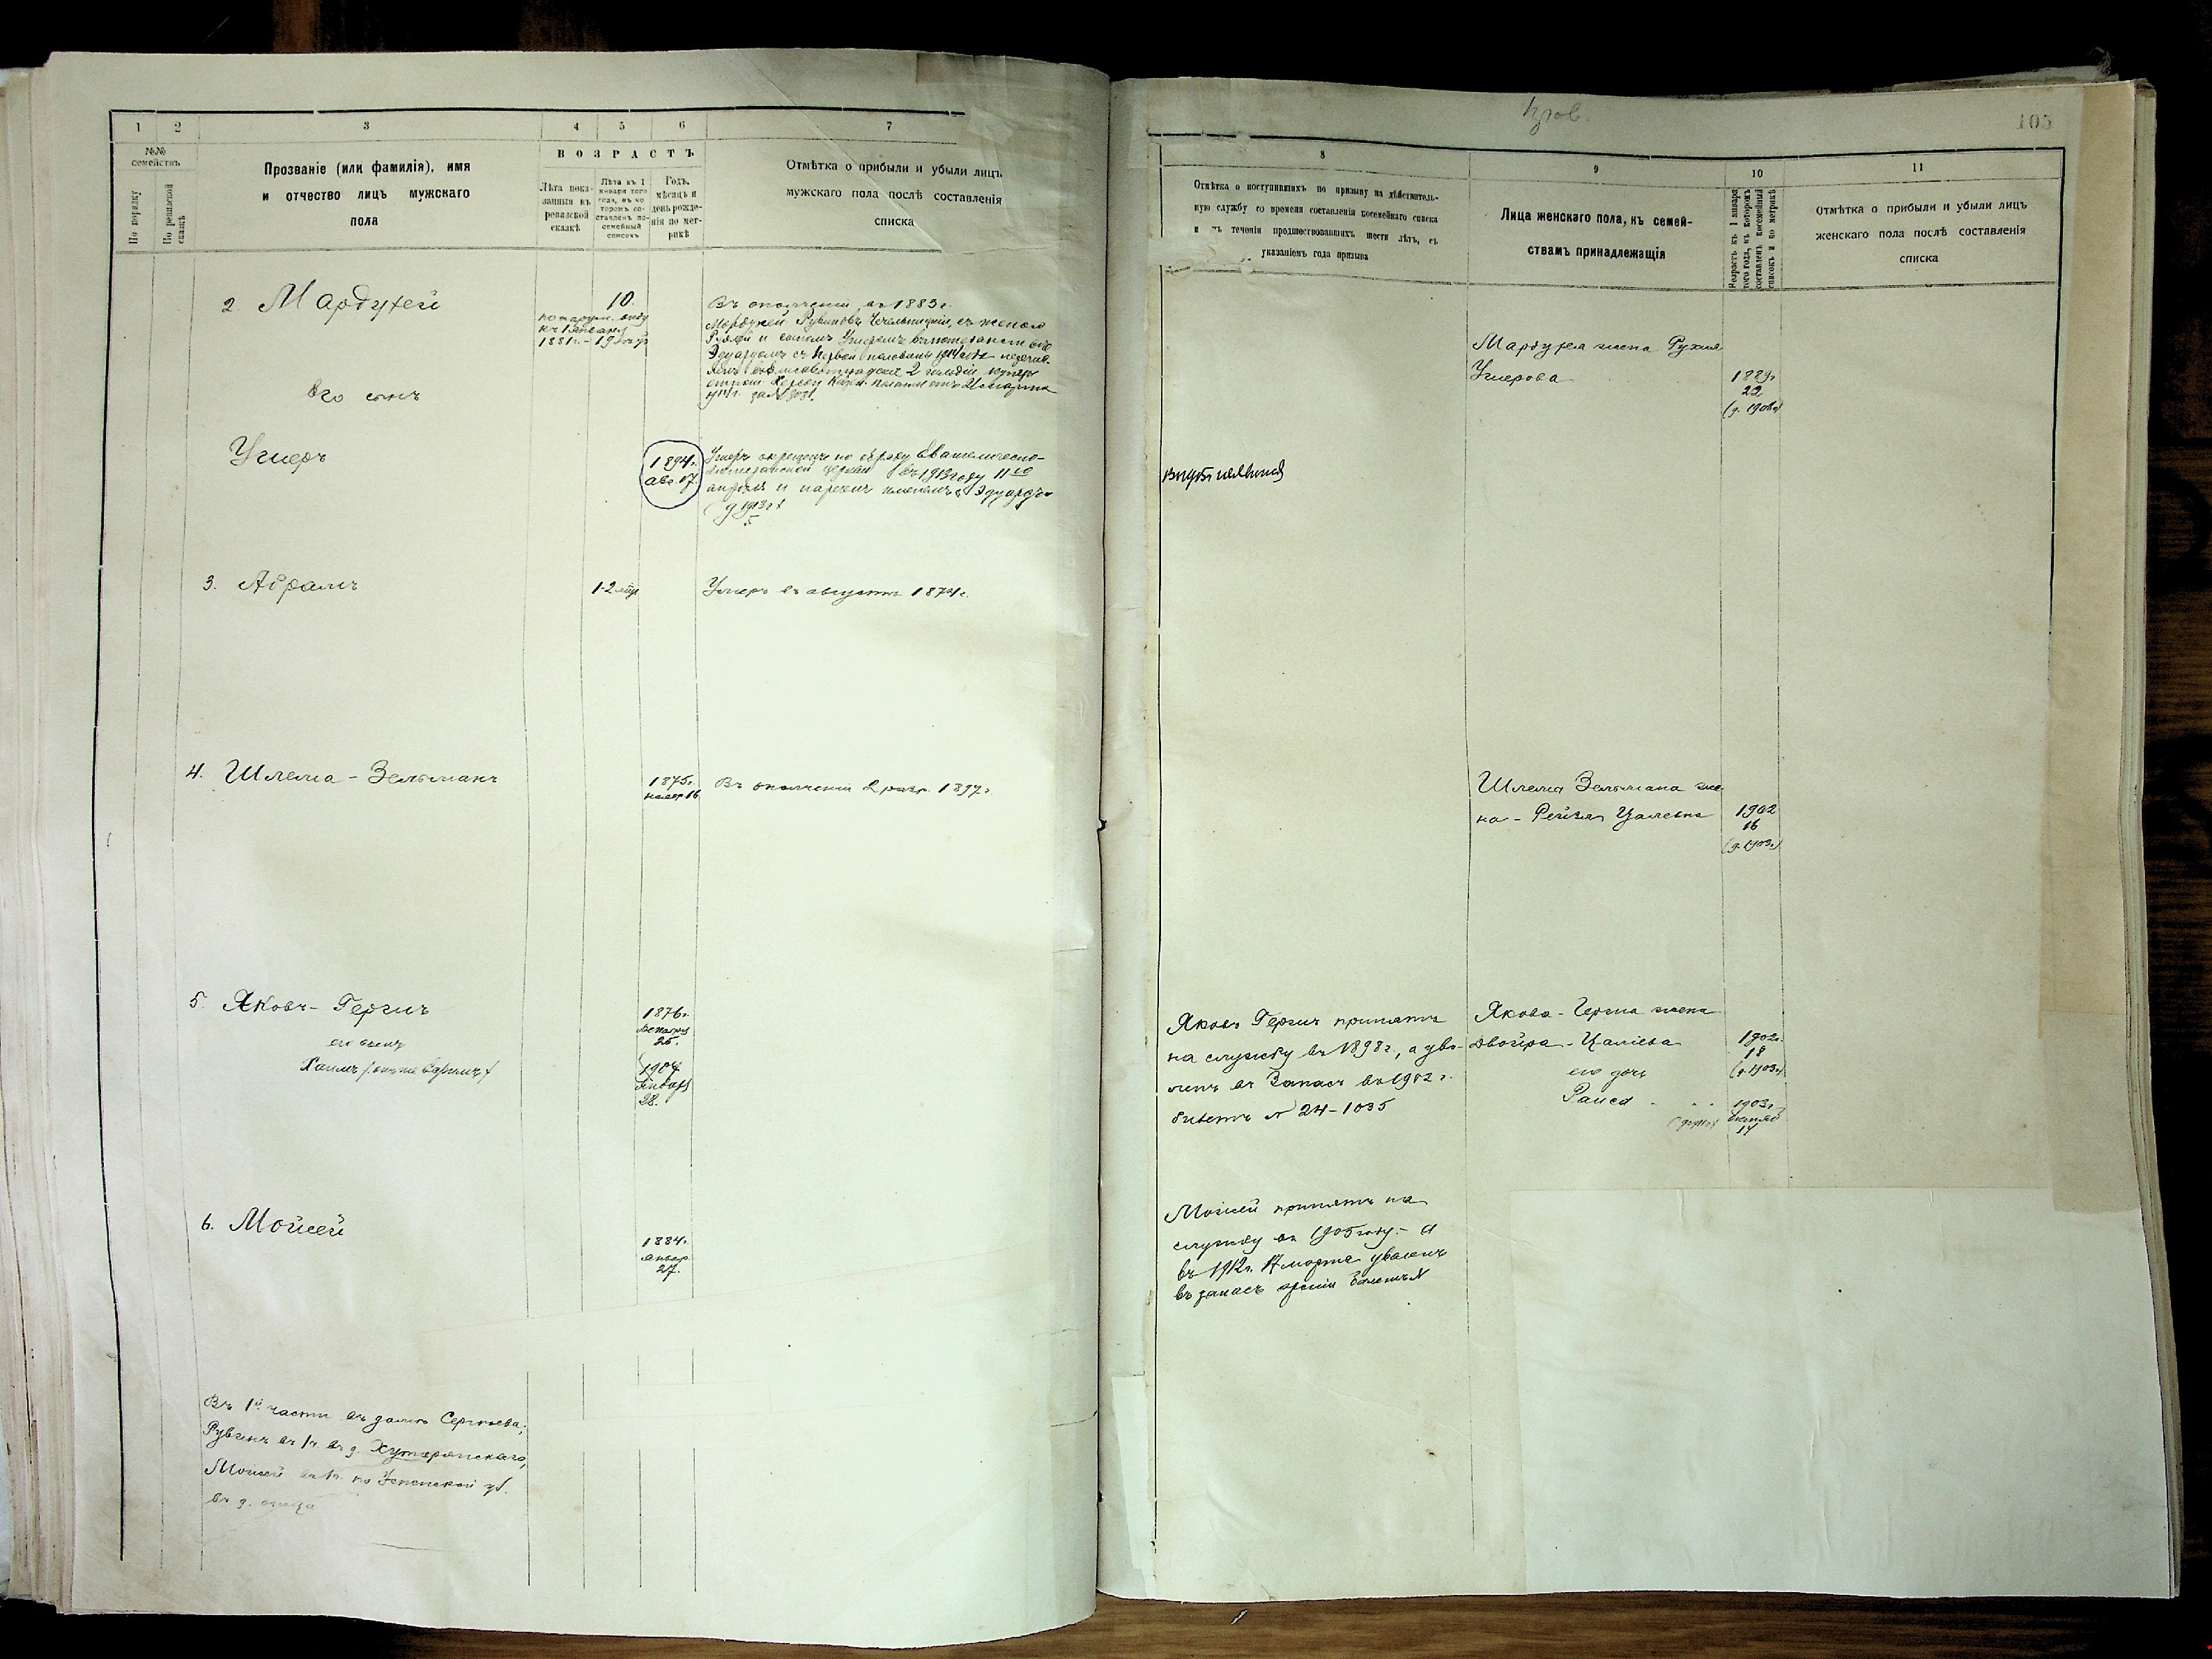 1 2 3 4 5 6 7
№№ семействъ
По порядку
По ревизской сказкѣ
Прозваніе (или фамилія), имя
и отчество лицъ мужскаго
пола
ВОЗРАСТЪ
Лѣта пока-
занныя въ
ревизской
сказкѣ
Лѣта къ 1
января того
года, въ ко-
торомъ со-
ставленъ по-
семейный
списокъ
Годъ,
мѣсяцъ и
день рожде-
нія по мет-
рикѣ
Отмѣтка о прибыли и убыли лицъ
мужскаго пола послѣ составленія
списка
2. Мардухей
10.
по наружн. виду
къ 1 Января
1881 г. - 19
Въ ополченіи въ 1883 г.
Мордухей Рувиновъ Чечельницкій, съ женою
Рухлей и сыномъ
Эдуардомъ съ первой половины 1914 года
его сынъ
Ушеръ
1894 г.
авг. 17.
Ушеръ окрещенъ по обряду Евангелическо-
лютеранской церкви въ 1913 году 11го
апрѣля и нареченъ именемъ Эдуардъ
3. Абрамъ
1-2 мѣс
Умеръ въ августѣ 1874 г.
4. Шлема - Зельманъ
1875 г.
ноябр 16
Въ ополченіи 2 разр. 1897 г.
5. Яковъ - Гершъ
1876 г.
25.
его сынъ
Хаимъ
1904
января
28.
6. Мойсей
1884 г.
январ
27.
Въ 1й части въ домѣ Сергѣева;
Рувинъ въ 1 ч. въ д.
Мойсей въ 1 ч. по Успенской ул.
въ д. отца
пров.
105
8 9 10 11
Отмѣтка о поступившихъ по призыву на дѣйствитель-
ную службу со времени составленія посемейнаго списка
и въ теченіи предшествовавшихъ шести лѣтъ, съ
указаніемъ года призыва
Лица женскаго пола, къ семей-
ствамъ принадлежащія
Возрастъ къ 1 января
того года, въ которомъ
составленъ посемейный
списокъ и по метрикѣ
Отмѣтка о прибыли и убыли лицъ
женскаго пола послѣ составленія
списка
Мардухея жена Рухля
Ушерова
1889 г
22
Шлема Зельмана же-
на - Рейзя Цалевна
1902
16
(д. 1903 г)
Яковъ Гершъ принятъ
на службу въ 1898 г, а уво-
ленъ въ Запасъ въ 1902 г.
билетъ № 24-1035
Якова - Герша жена
Двойра - Цалева
1902 г.
18
(д. 1903 г)
его дочь
Раиса
1903 г
17
Мойсей принятъ на
службу въ 1905 году - а
въ 1912 г. 17 марта уволенъ
въ запасъ арміи билетъ №